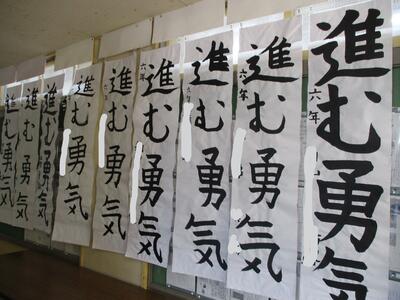 進む勇気
六年
進む勇気
六年
進む勇気
六年
進む勇気
六年
進む勇気
六年
進む勇気
進む勇気
進む勇気
進む勇気